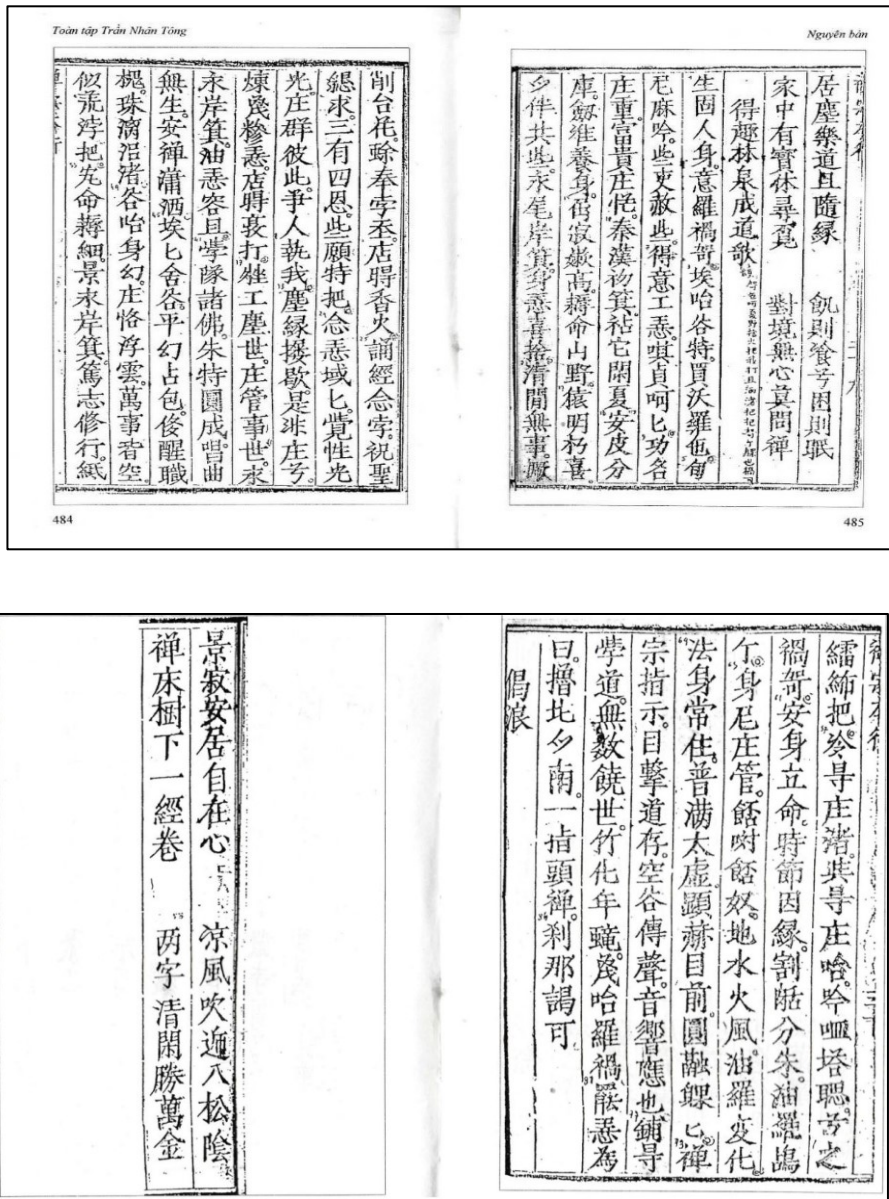 Toàn tập Trần Nhân Tông
Nguyên bản
居塵樂道且隨緣 飢則飡兮困則眠
家中有寶休尋覓 對境無心莫問禪
得趣林泉成道歌
生固人身。意羅禍哿。埃咍谷特。買沃羅也。旬
尼麻吟。些吏赦些。得意工悪。唭貞呵匕。功名
庄重。富貴庄恍。秦漢初箕。祜它閑夏。安皮分
庫。劔准養身。召寂嫰高。耨命山野。猿明朽喜
伴共些。永尾岸箕。身悪喜捨。清閒無事。厭
485
削台花。餘奉字丞。店聘香火。誦經念字。祝聖
懇求。三有四恩。些願特把。念悪域匕。覺性光
光。庄群彼此。爭人執我。塵緣撥歇。是非庄兮
煉茂糝悪。店聘打。甡工塵世。庄管事世。求
永岸箕。油悪容且。學隊諸佛。朱特圓成。唱曲
無生。安禪瀟洒。埃匕舍谷。平幻占包。俊醒職
槐。珠漓沼渚。谷咍身幻。庄恪浮雲。萬事皆空
似流浮把。命蒋細。景永岸箕。篤志修行。紙
484
繻締把。谷㝵庄渚。共㝵庄哈。吟呬塔聰。兮之
禍哿。安身立命。時節因緣。割䏦分朱。油羅鴣
亇。身尼庄管。餂咐餂奴。地水火風。油羅变化
法身常住。普滿太虛。顯赫目前。圓融匕。禅
宗指示。目擊道存。空谷傳聲。音響應也。鋪㝵
學道。無数饒世。竹化年。茂咍羅禍。悪為
曰。擼北南。一指頭禅。刹那謁可
偈浪
景寂安居自在心 凉風吹逈入松陰
禅床樹下一經卷 两字清閑勝萬金